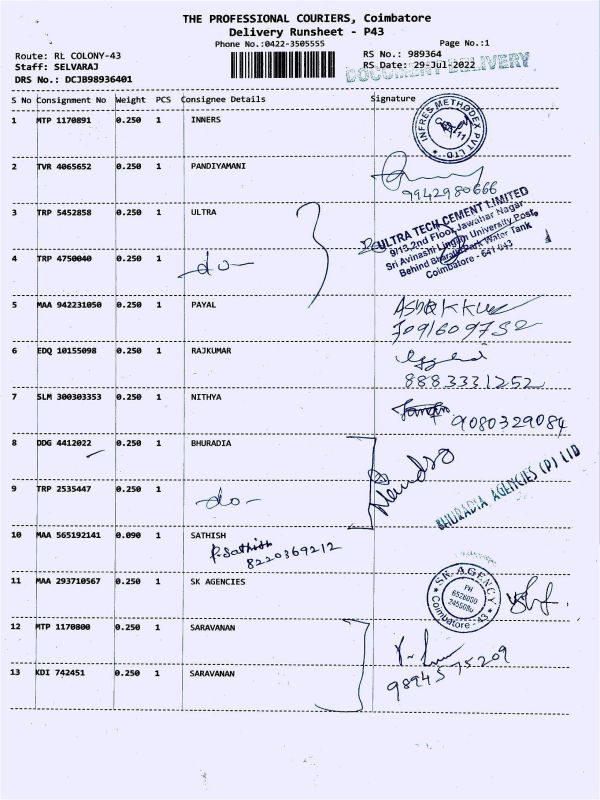 THE PROFESSIONAL COURIERS, Coimbatore
Delivery Runsheet - P43
Phone No.:0422-3505555
Page No.:1
Route: RL COLONY-43
RS No.: 989364
Staff: SELVARAJ
RS Date: 29-Jul-2022
DOCUMENT DELIVERY
DRS No.: DCJB98936401
S No Consignment No Weight PCS Consignee Details Signature
1 MTP 1170891 0.250 1 INNERS
INFRES METHODEX PVT LTD
2 TVR 4065652 0.250 1 PANDIYAMANI
9942980666
3 TRP 5452858 0.250 1 ULTRA
ULTRA TECH CEMENT LIMITED
9/13,2nd Floor, Jawahar Nagar
Sri Avinashi Lingam University Post,
Behind Bharathi Park Water Tank
Coimbatore - 641 043
4 TRP 4750040 0.250 1 -do-
5 MAA 942231050 0.250 1 PAYAL
7091609752
6 EDQ 10155098 0.250 1 RAJKUMAR
8883331252
7 SLM 300303353 0.250 1 NITHYA
9080329084
8 DDG 4412022 0.250 1 BHURADIA
BHURADIA AGENCIES (P) LTD
9 TRP 2535447 0.250 1 -do-
10 MAA 565192141 0.090 1 SATHISH
P. Sathish
8220369212
11 MAA 293710567 0.250 1 SK AGENCIES
SK AGENCY
PH
Coimbatore - 43
12 MTP 1170800 0.250 1 SARAVANAN
13 KDI 742451 0.250 1 SARAVANAN
98945 75209